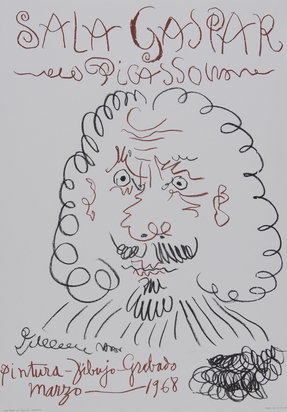 SALA GASPAR
Picasso
Pintura-Dibujo-Grabado
Marzo 1968